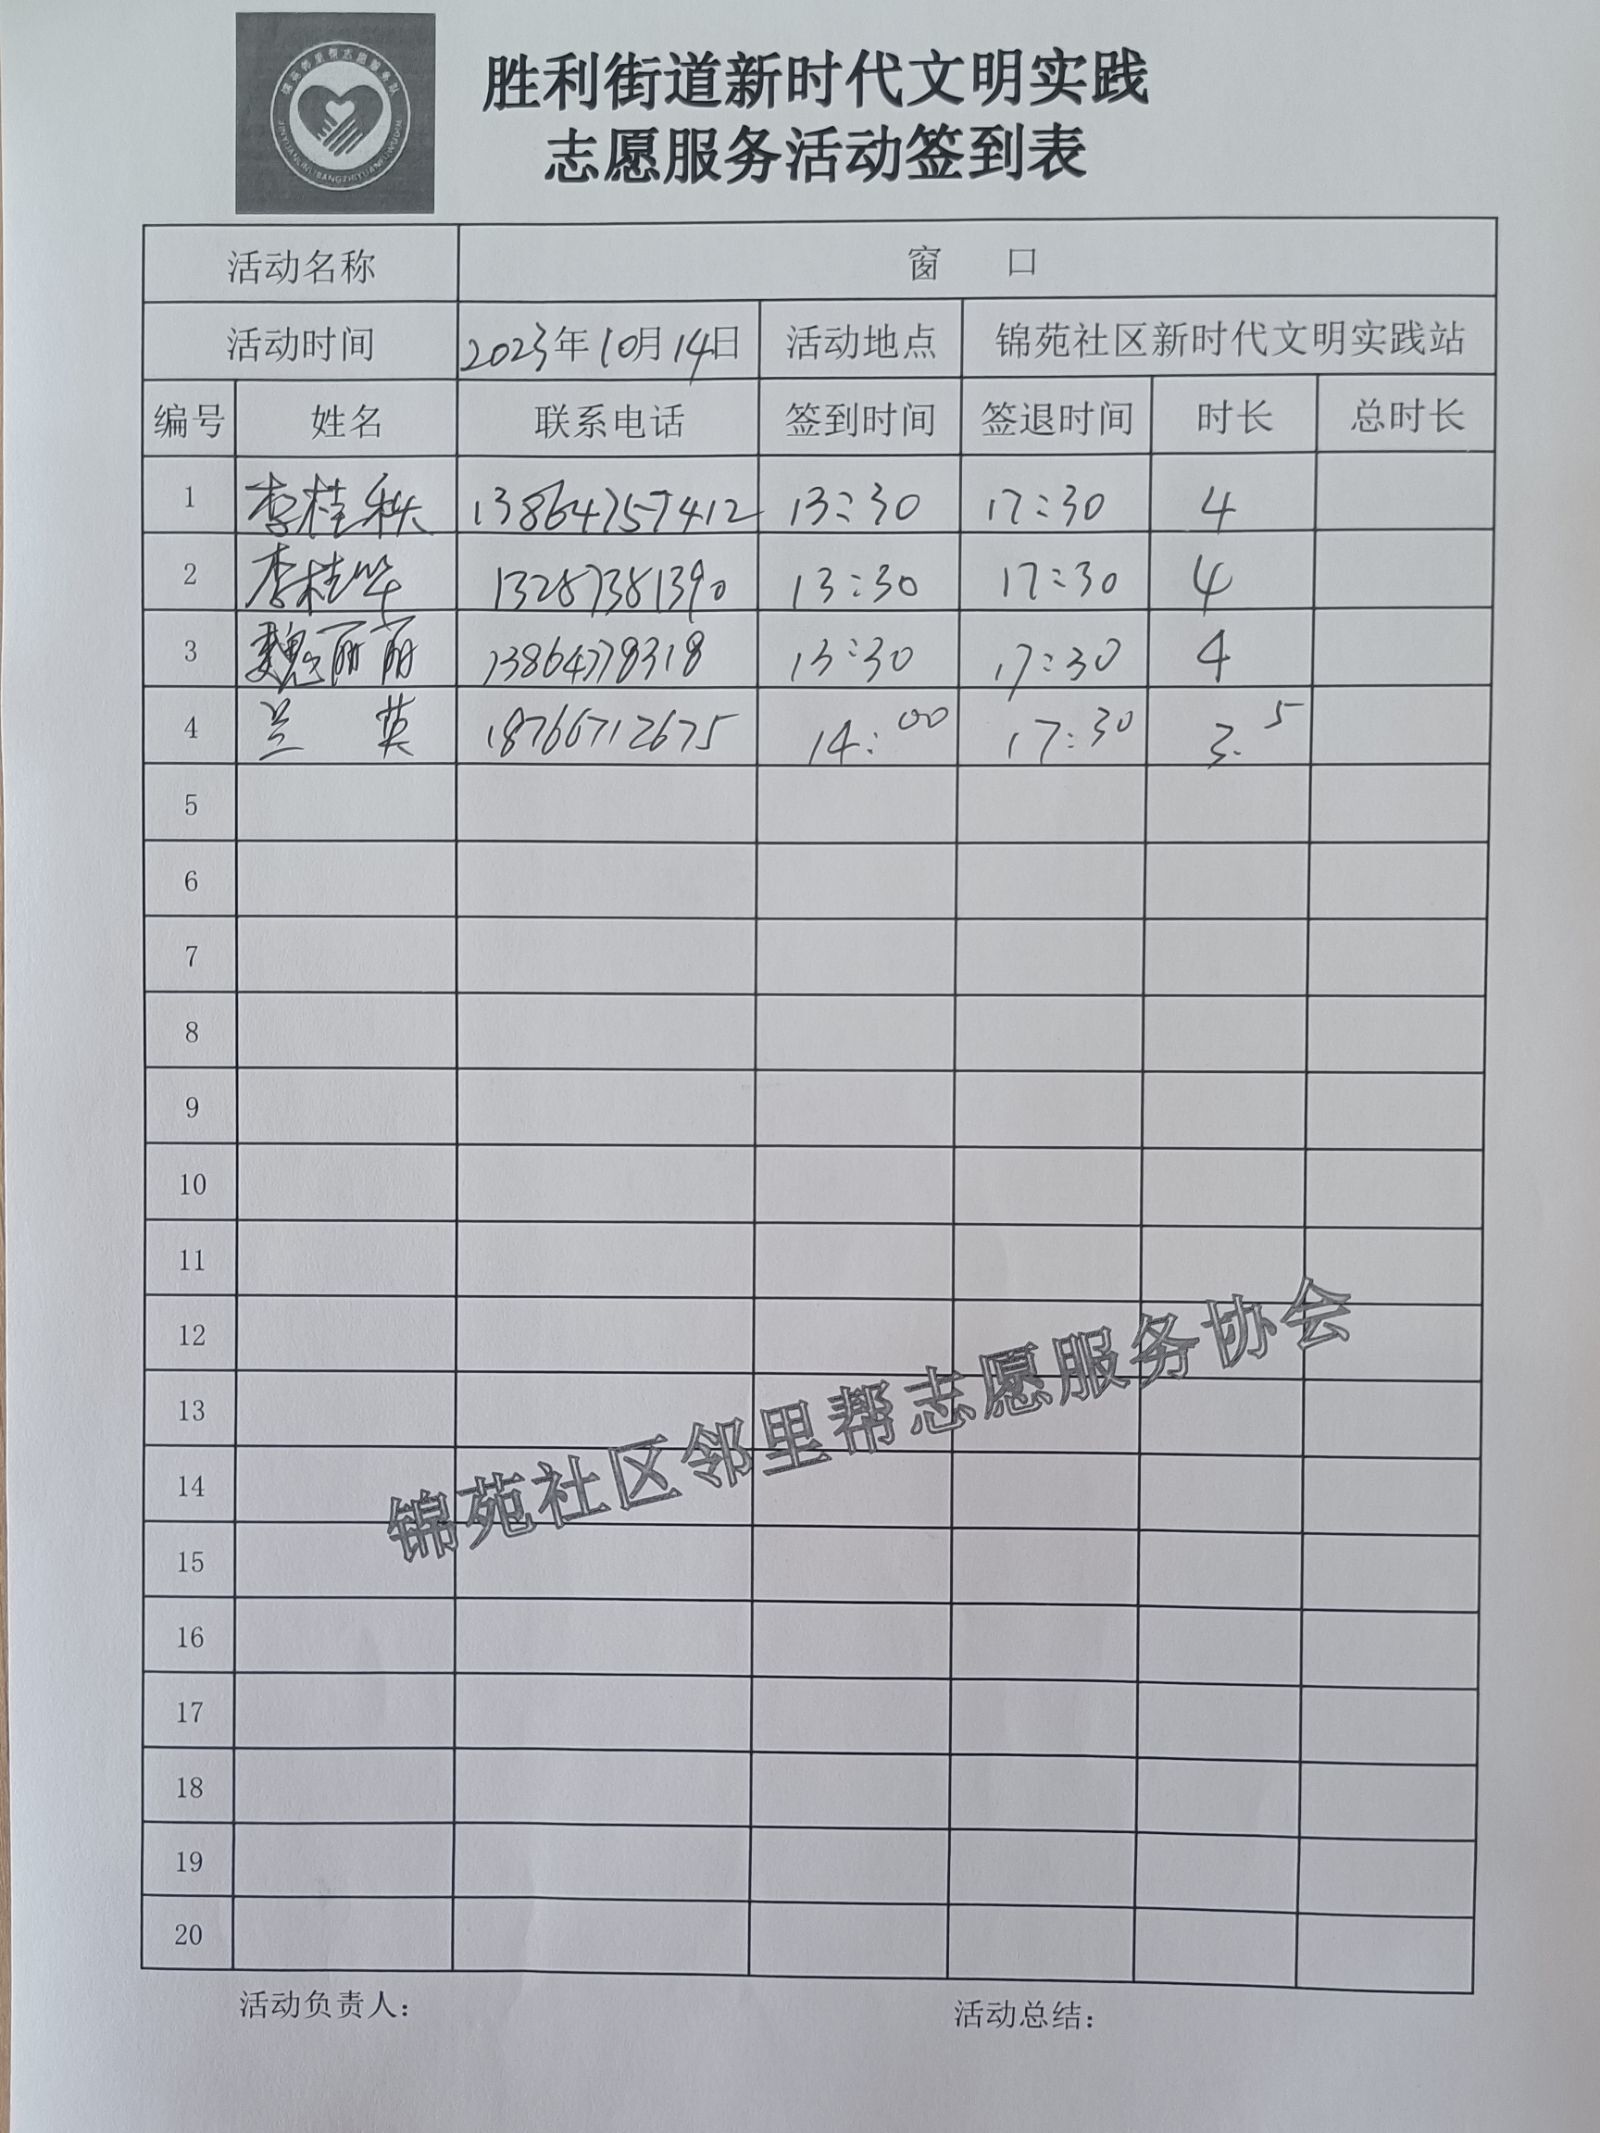 锦苑邻里帮志愿服务队
胜利街道新时代文明实践
志愿服务活动签到表
活动名称 窗 口
活动时间 2023年10月14日 活动地点 锦苑社区新时代文明实践站
编号 姓名 联系电话 签到时间 签退时间 时长 总时长
1 李桂秋 13864757412 13:30 17:30 4
2 李桂华 13287381390 13:30 17:30 4
3 魏丽丽 13864778318 13:30 17:30 4
4 兰 英 18766712675 14:00 17:30 3.5
5
6
7
8
9
10
11
12
13
14
15
16
17
18
19
20
锦苑社区邻里帮志愿服务协会
活动负责人： 活动总结：